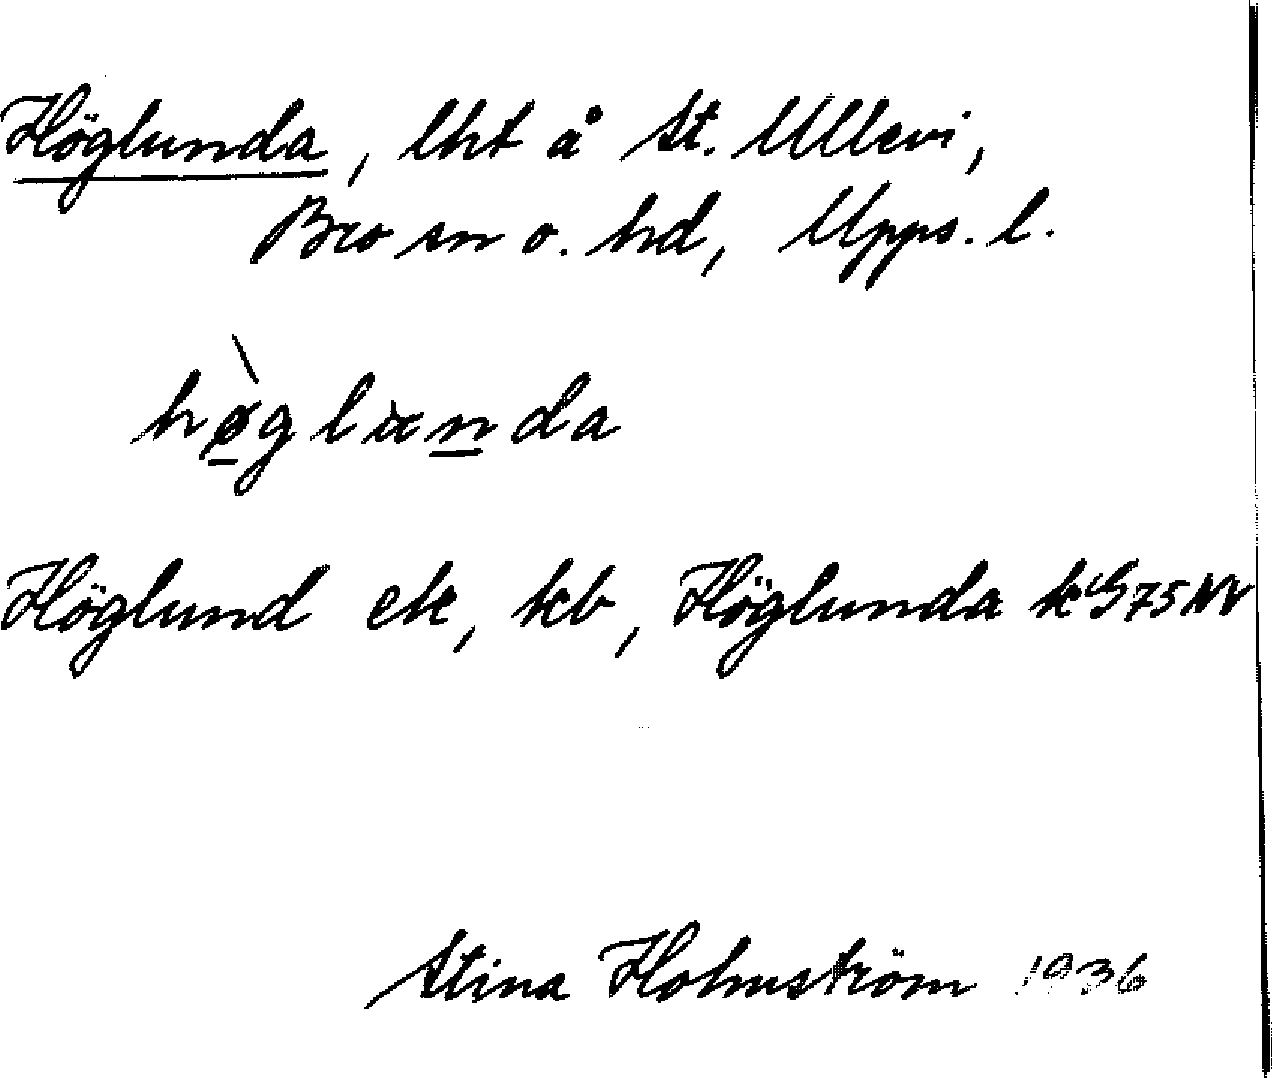 Höglunda, lht å St. Ullevi,
Bro sn o. hd, Upps. l.
Höglund ek, kb, Höglunda k G 75 NV
Stina Holmström 1936